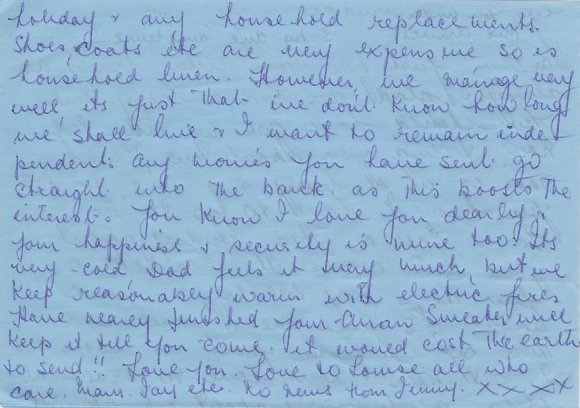 holiday & any household replacements.
Shoes, coats etc are very expensive so is
household linen. However, we manage very
well, its just that we don't know how long
we shall live & I want to remain inde-
pendent. Any monies you have sent go
straight into the bank. as this boosts the
interest. You know I love you dearly,
your happiness & security is mine too. Its
very cold Dad feels it very much, but we
keep reasonabley warm with electric fires
Have nearly finished your Arran Sweater will
keep it till you come. it would cost the earth
to send!! Love you. Love to Louise all who
care. Mam. Fay etc. No news from Jenny. x x x x